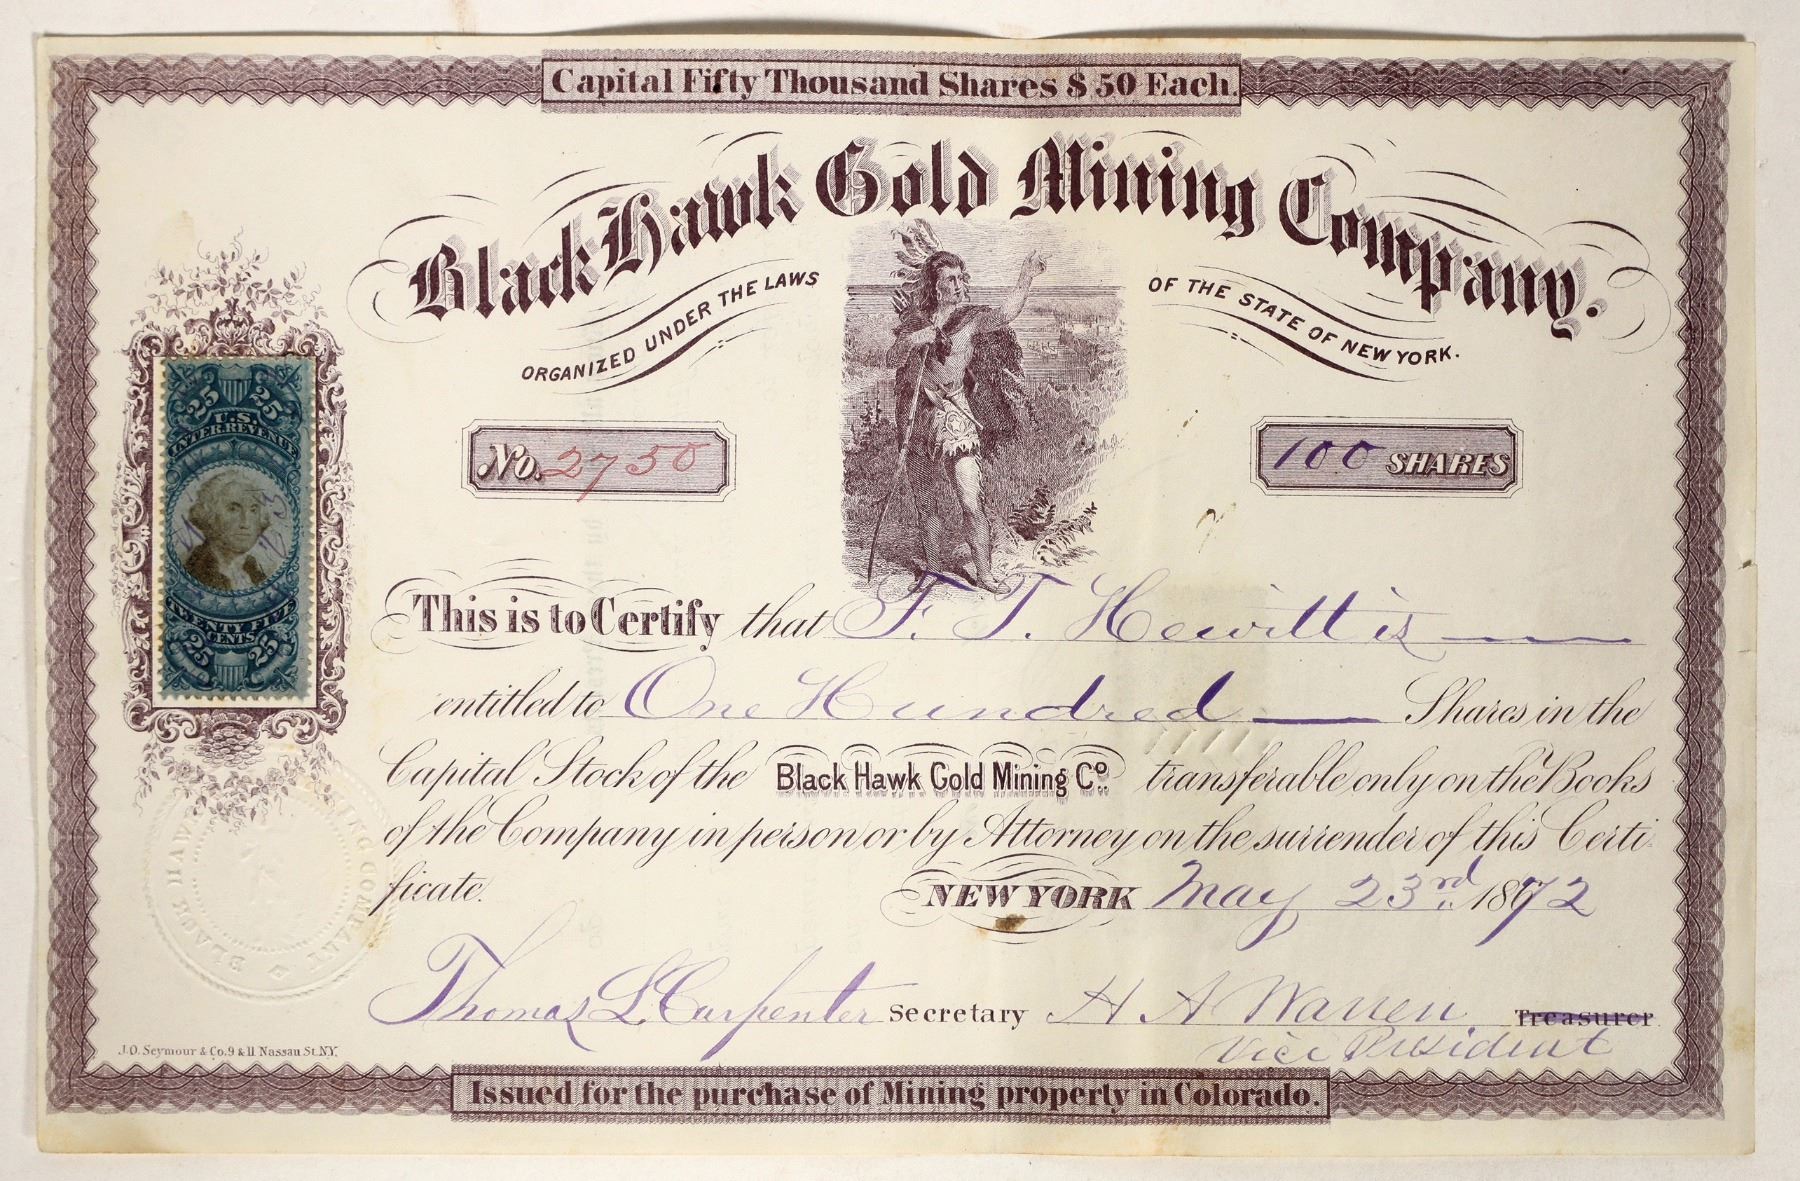 Capital Fifty Thousand Shares $50 Each.
Black Hawk Gold Mining Company.
ORGANIZED UNDER THE LAWS OF THE STATE OF NEW YORK.
No. 2750
100 SHARES
25 25
U.S.
INTER. REVENUE
TWENTY FIVE
CENTS
25 25
This is to Certify that F. T. Hewitt is
entitled to One Hundred Shares in the
Capital Stock of the Black Hawk Gold Mining Co. transferable only on the Books
of the Company in person or by Attorney on the surrender of this Certi-
ficate.
NEW YORK May 23rd. 1872
BLACK HAWK MINING COMPANY
Thomas L. Carpenter Secretary H A Warren Treasurer
Vice President
J.O. Seymour & Co. 9 & 11 Nassau St. N.Y.
Issued for the purchase of Mining property in Colorado.